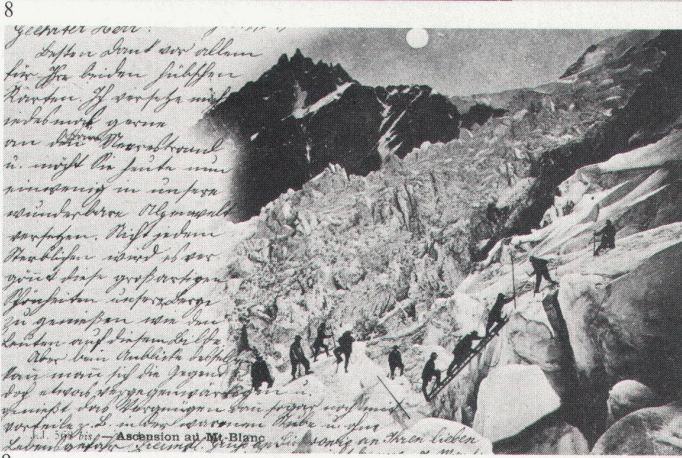 8
Geehrter Herr!
Besten Dank vor allem
für Ihre beiden hübschen
Karten. Ich versetze mich
jedesmal gerne
an den Meeresstrand
u. möcht Sie heute nun
einwenig in unsere
wunderbare Alpenwelt
versetzen. Nicht jedem
Sterblichen wird es ver
gönnt diese großartigen
Schönheiten unserer Berge
zu geniessen wie den
Leuten auf diesem Bilde.
Aber beim Anblicke desselb
kann man sich die Gegend
doch etwas vergegenwärtigen u.
genießt das Vergnügen von sogar noch mit
vorteile z. B. in der warmen Stube u. ohne
Lebensgefahr
an Ihren lieben
J.J. bis. — Ascension au Mt-Blanc
9